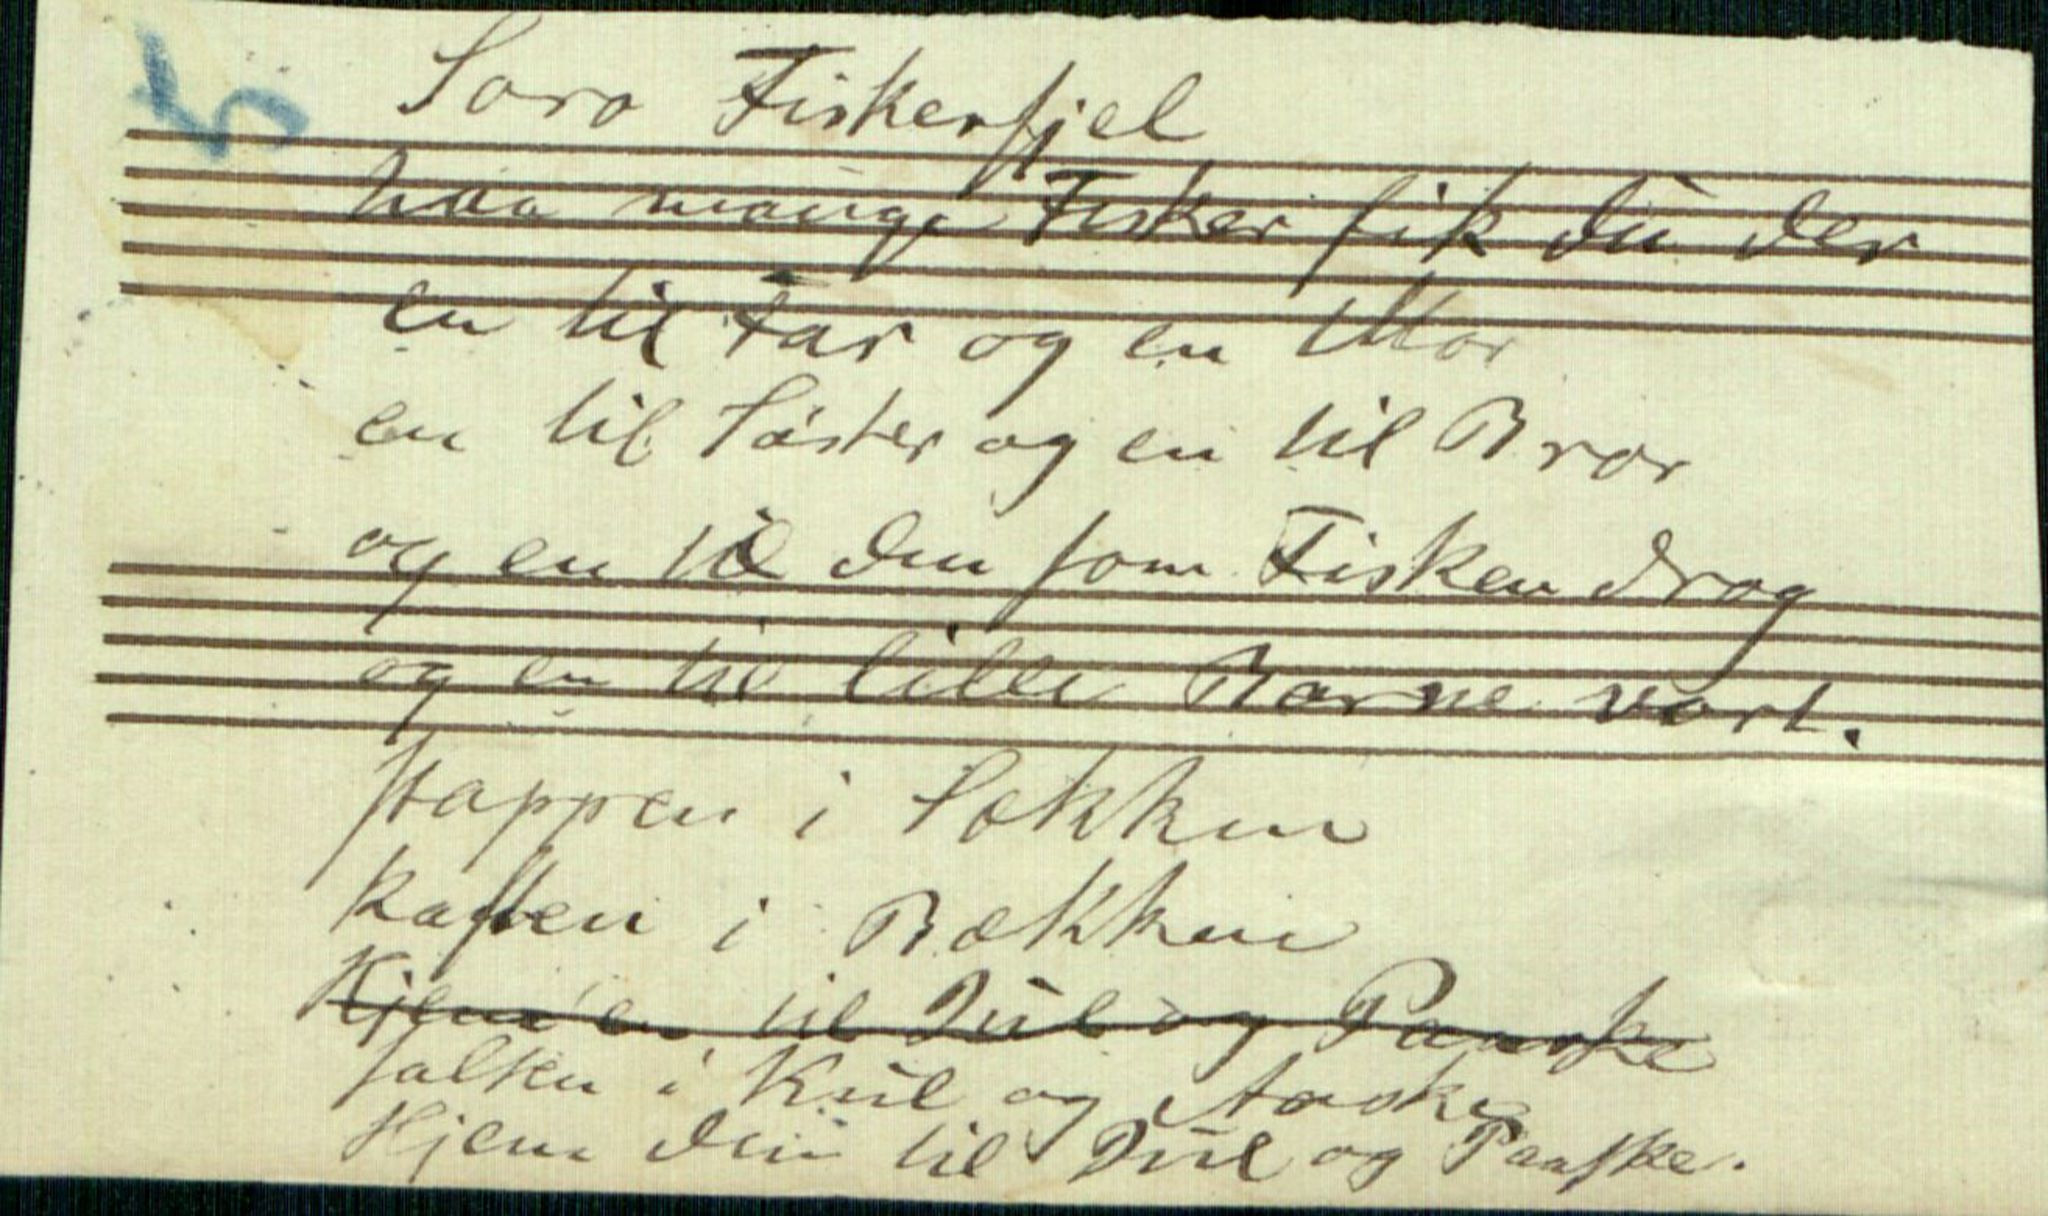 Soro Fiskerfjel
hvaa mange Fisker fik du der
en til Far og en Mor
en til Søster og en til Bror
og en til den som Fisken drog
og en til lille Barne vort.
stappen i Sækken
kasten i Bækken
Kjem en til Jul og Paaske
falken i Kul og Aaske
Hjem den til Jul og Paaske.